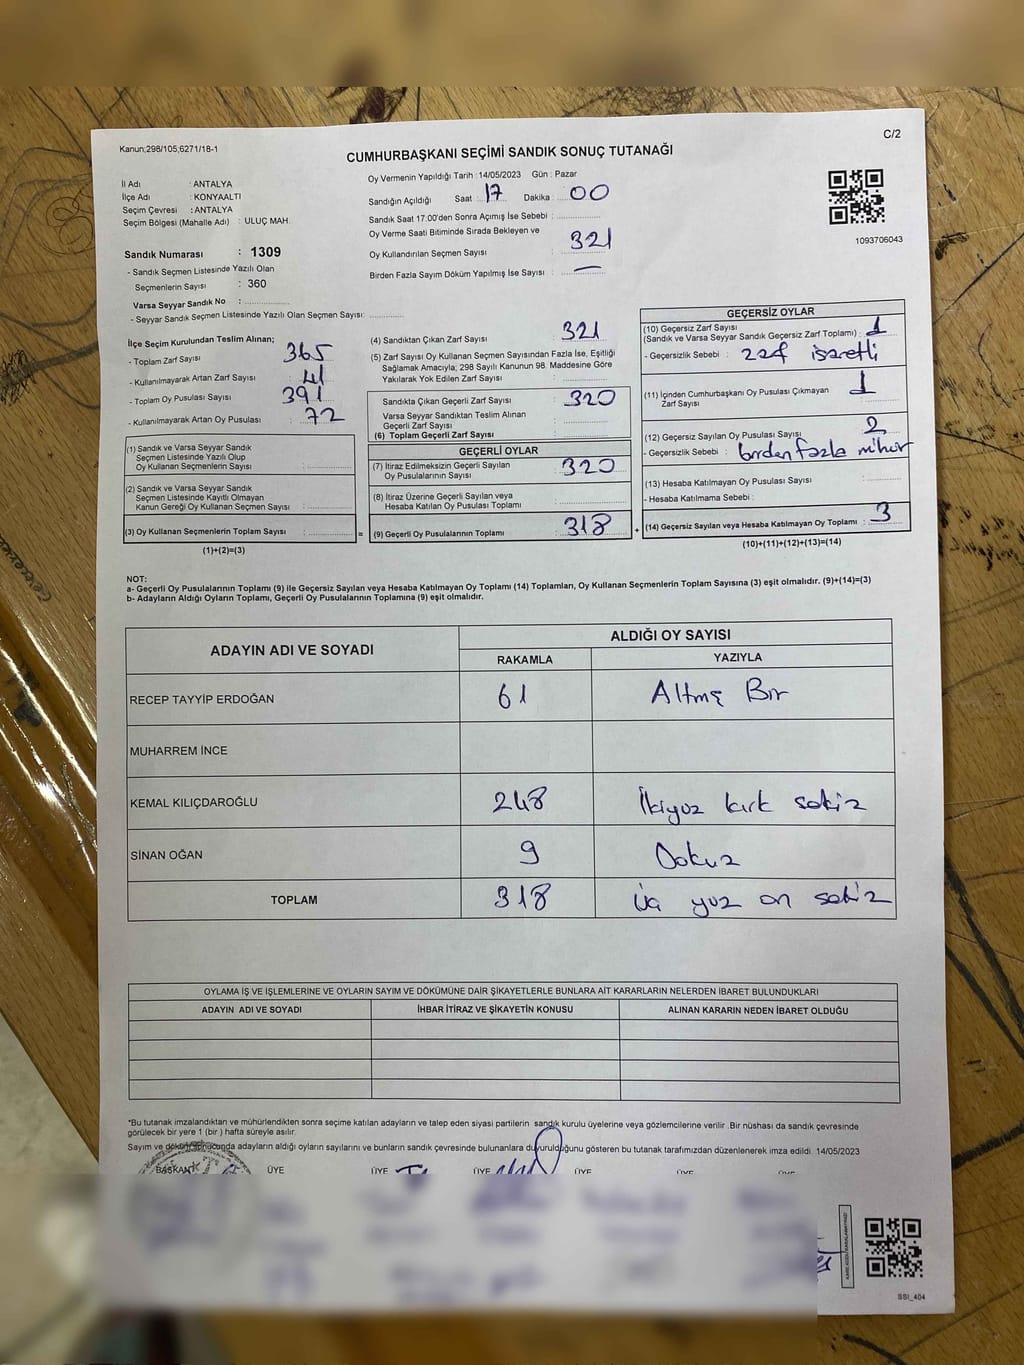 Kanun;298/105;6271/18-1
C/2
CUMHURBAŞKANI SEÇİMİ SANDIK SONUÇ TUTANAĞI
İl Adı : ANTALYA
İlçe Adı : KONYAALTI
Seçim Çevresi : ANTALYA
Seçim Bölgesi (Mahalle Adı) : ULUÇ MAH.
Sandık Numarası : 1309
- Sandık Seçmen Listesinde Yazılı Olan
Seçmenlerin Sayısı : 360
Varsa Seyyar Sandık No :
- Seyyar Sandık Seçmen Listesinde Yazılı Olan Seçmen Sayısı:
Oy Vermenin Yapıldığı Tarih : 14/05/2023 Gün : Pazar
Sandığın Açıldığı Saat : 17 Dakika : 00
Sandık Saat 17.00'den Sonra Açımış İse Sebebi :
Oy Verme Saati Bitiminde Sırada Bekleyen ve
Oy Kullandırılan Seçmen Sayısı : 321
Birden Fazla Sayım Döküm Yapılmış İse Sayısı : —
1093706043
İlçe Seçim Kurulundan Teslim Alınan;
- Toplam Zarf Sayısı : 365
- Kullanılmayarak Artan Zarf Sayısı : 41
- Toplam Oy Pusulası Sayısı : 391
- Kullanılmayarak Artan Oy Pusulası : 72
(1) Sandık ve Varsa Seyyar Sandık
Seçmen Listesinde Yazılı Olup
Oy Kullanan Seçmenlerin Sayısı :
(2) Sandık ve Varsa Seyyar Sandık
Seçmen Listesinde Kayıtlı Olmayan
Kanun Gereği Oy Kullanan Seçmen Sayısı :
(3) Oy Kullanan Seçmenlerin Toplam Sayısı :
(1)+(2)=(3)
=
(4) Sandıktan Çıkan Zarf Sayısı : 321
(5) Zarf Sayısı Oy Kullanan Seçmen Sayısından Fazla İse, Eşitliği
Sağlamak Amacıyla; 298 Sayılı Kanunun 98. Maddesine Göre
Yakılarak Yok Edilen Zarf Sayısı :
Sandıkta Çıkan Geçerli Zarf Sayısı : 320
Varsa Seyyar Sandıktan Teslim Alınan
Geçerli Zarf Sayısı :
(6) Toplam Geçerli Zarf Sayısı
GEÇERLİ OYLAR
(7) İtiraz Edilmeksizin Geçerli Sayılan
Oy Pusulalarının Sayısı : 320
(8) İtiraz Üzerine Geçerli Sayılan veya
Hesaba Katılan Oy Pusulası Toplamı :
(9) Geçerli Oy Pusulalarının Toplamı : 318
+
GEÇERSİZ OYLAR
(10) Geçersiz Zarf Sayısı
(Sandık ve Varsa Seyyar Sandık Geçersiz Zarf Toplamı) : 1
- Geçersizlik Sebebi : zarf işaretli
(11) İçinden Cumhurbaşkanı Oy Pusulası Çıkmayan
Zarf Sayısı : 1
(12) Geçersiz Sayılan Oy Pusulası Sayısı : 2
- Geçersizlik Sebebi : birden fazla mühür
(13) Hesaba Katılmayan Oy Pusulası Sayısı :
- Hesaba Katılmama Sebebi :
(14) Geçersiz Sayılan veya Hesaba Katılmayan Oy Toplamı : 3
(10)+(11)+(12)+(13)=(14)
NOT:
a- Geçerli Oy Pusulalarının Toplamı (9) ile Geçersiz Sayılan veya Hesaba Katılmayan Oy Toplamı (14) Toplamları, Oy Kullanan Seçmenlerin Toplam Sayısına (3) eşit olmalıdır. (9)+(14)=(3)
b- Adayların Aldığı Oyların Toplamı, Geçerli Oy Pusulalarının Toplamına (9) eşit olmalıdır.
ADAYIN ADI VE SOYADI
ALDIĞI OY SAYISI
RAKAMLA YAZIYLA
RECEP TAYYİP ERDOĞAN 61 Altmış Bir
MUHARREM İNCE
KEMAL KILIÇDAROĞLU 248 İkiyüz kırk sekiz
SİNAN OĞAN 9 Dokuz
TOPLAM 318 üç yüz on sekiz
OYLAMA İŞ VE İŞLEMLERİNE VE OYLARIN SAYIM VE DÖKÜMÜNE DAİR ŞİKAYETLERLE BUNLARA AİT KARARLARIN NELERDEN İBARET BULUNDUKLARI
ADAYIN ADI VE SOYADI İHBAR İTİRAZ VE ŞİKAYETİN KONUSU ALINAN KARARIN NEDEN İBARET OLDUĞU
*Bu tutanak imzalandıktan ve mühürlendikten sonra seçime katılan adayların ve talep eden siyasi partilerin sandık kurulu üyelerine veya gözlemcilerine verilir. Bir nüshası da sandık çevresinde
görülecek bir yere 1 (bir ) hafta süreyle asılır.
Sayım ve döküm sonucunda adayların aldığı oyların sayılarını ve bunların sandık çevresinde bulunanlara duyurulduğunu gösteren bu tutanak tarafımızdan düzenlenerek imza edildi. 14/05/2023
BAŞKAN ÜYE ÜYE ÜYE ÜYE ÜYE ÜYE
SSI_404